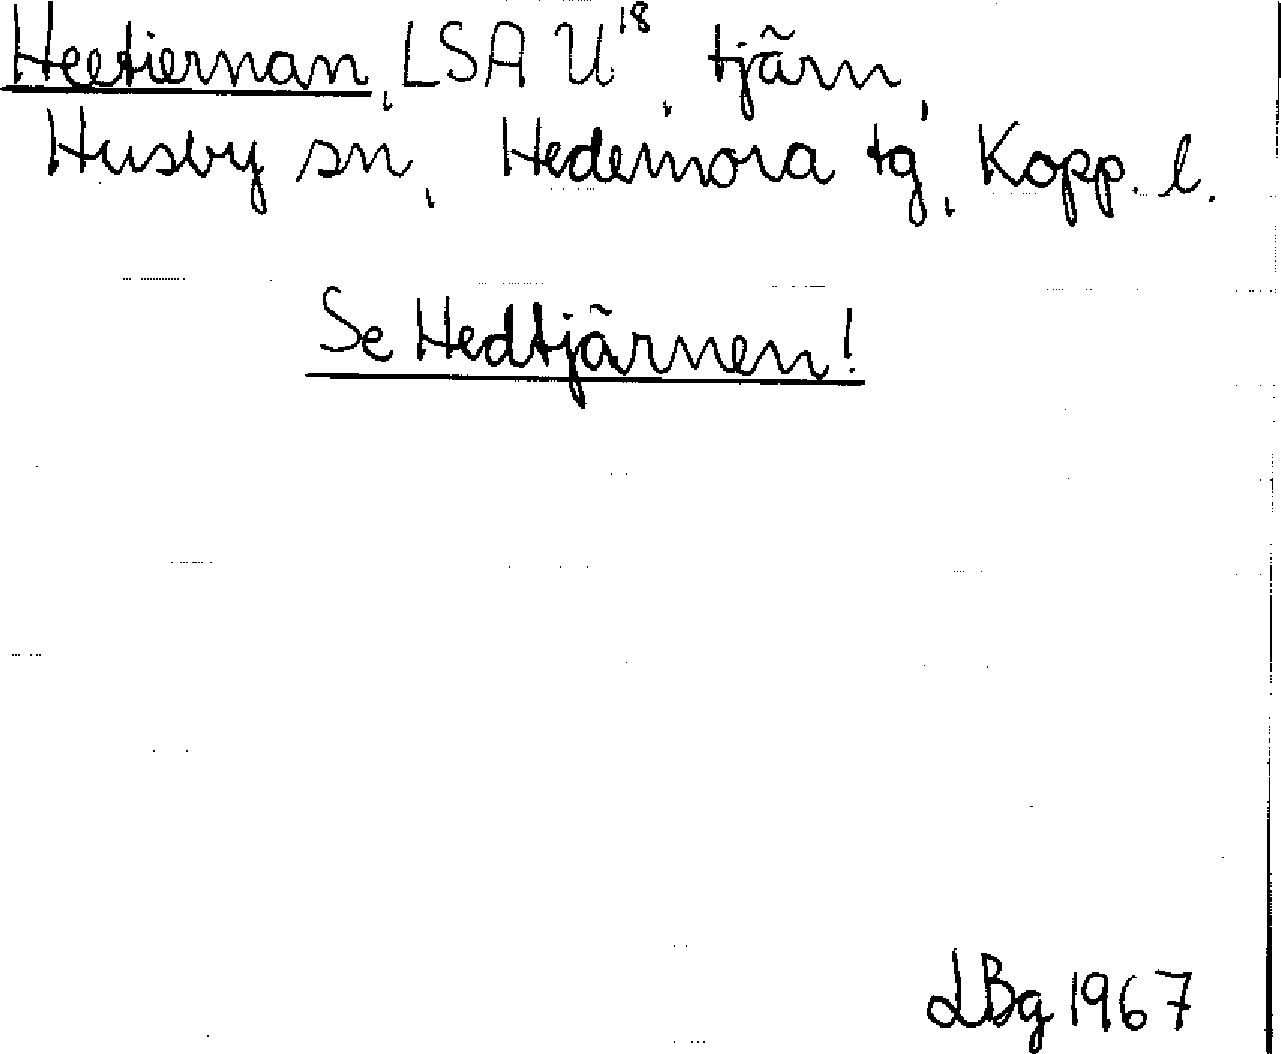 Heetiernan, LSA U18, tjärn,
Husby sn, Hedemora tg, Kopp. l.
Se Hedtjärnen!
LBg 1967